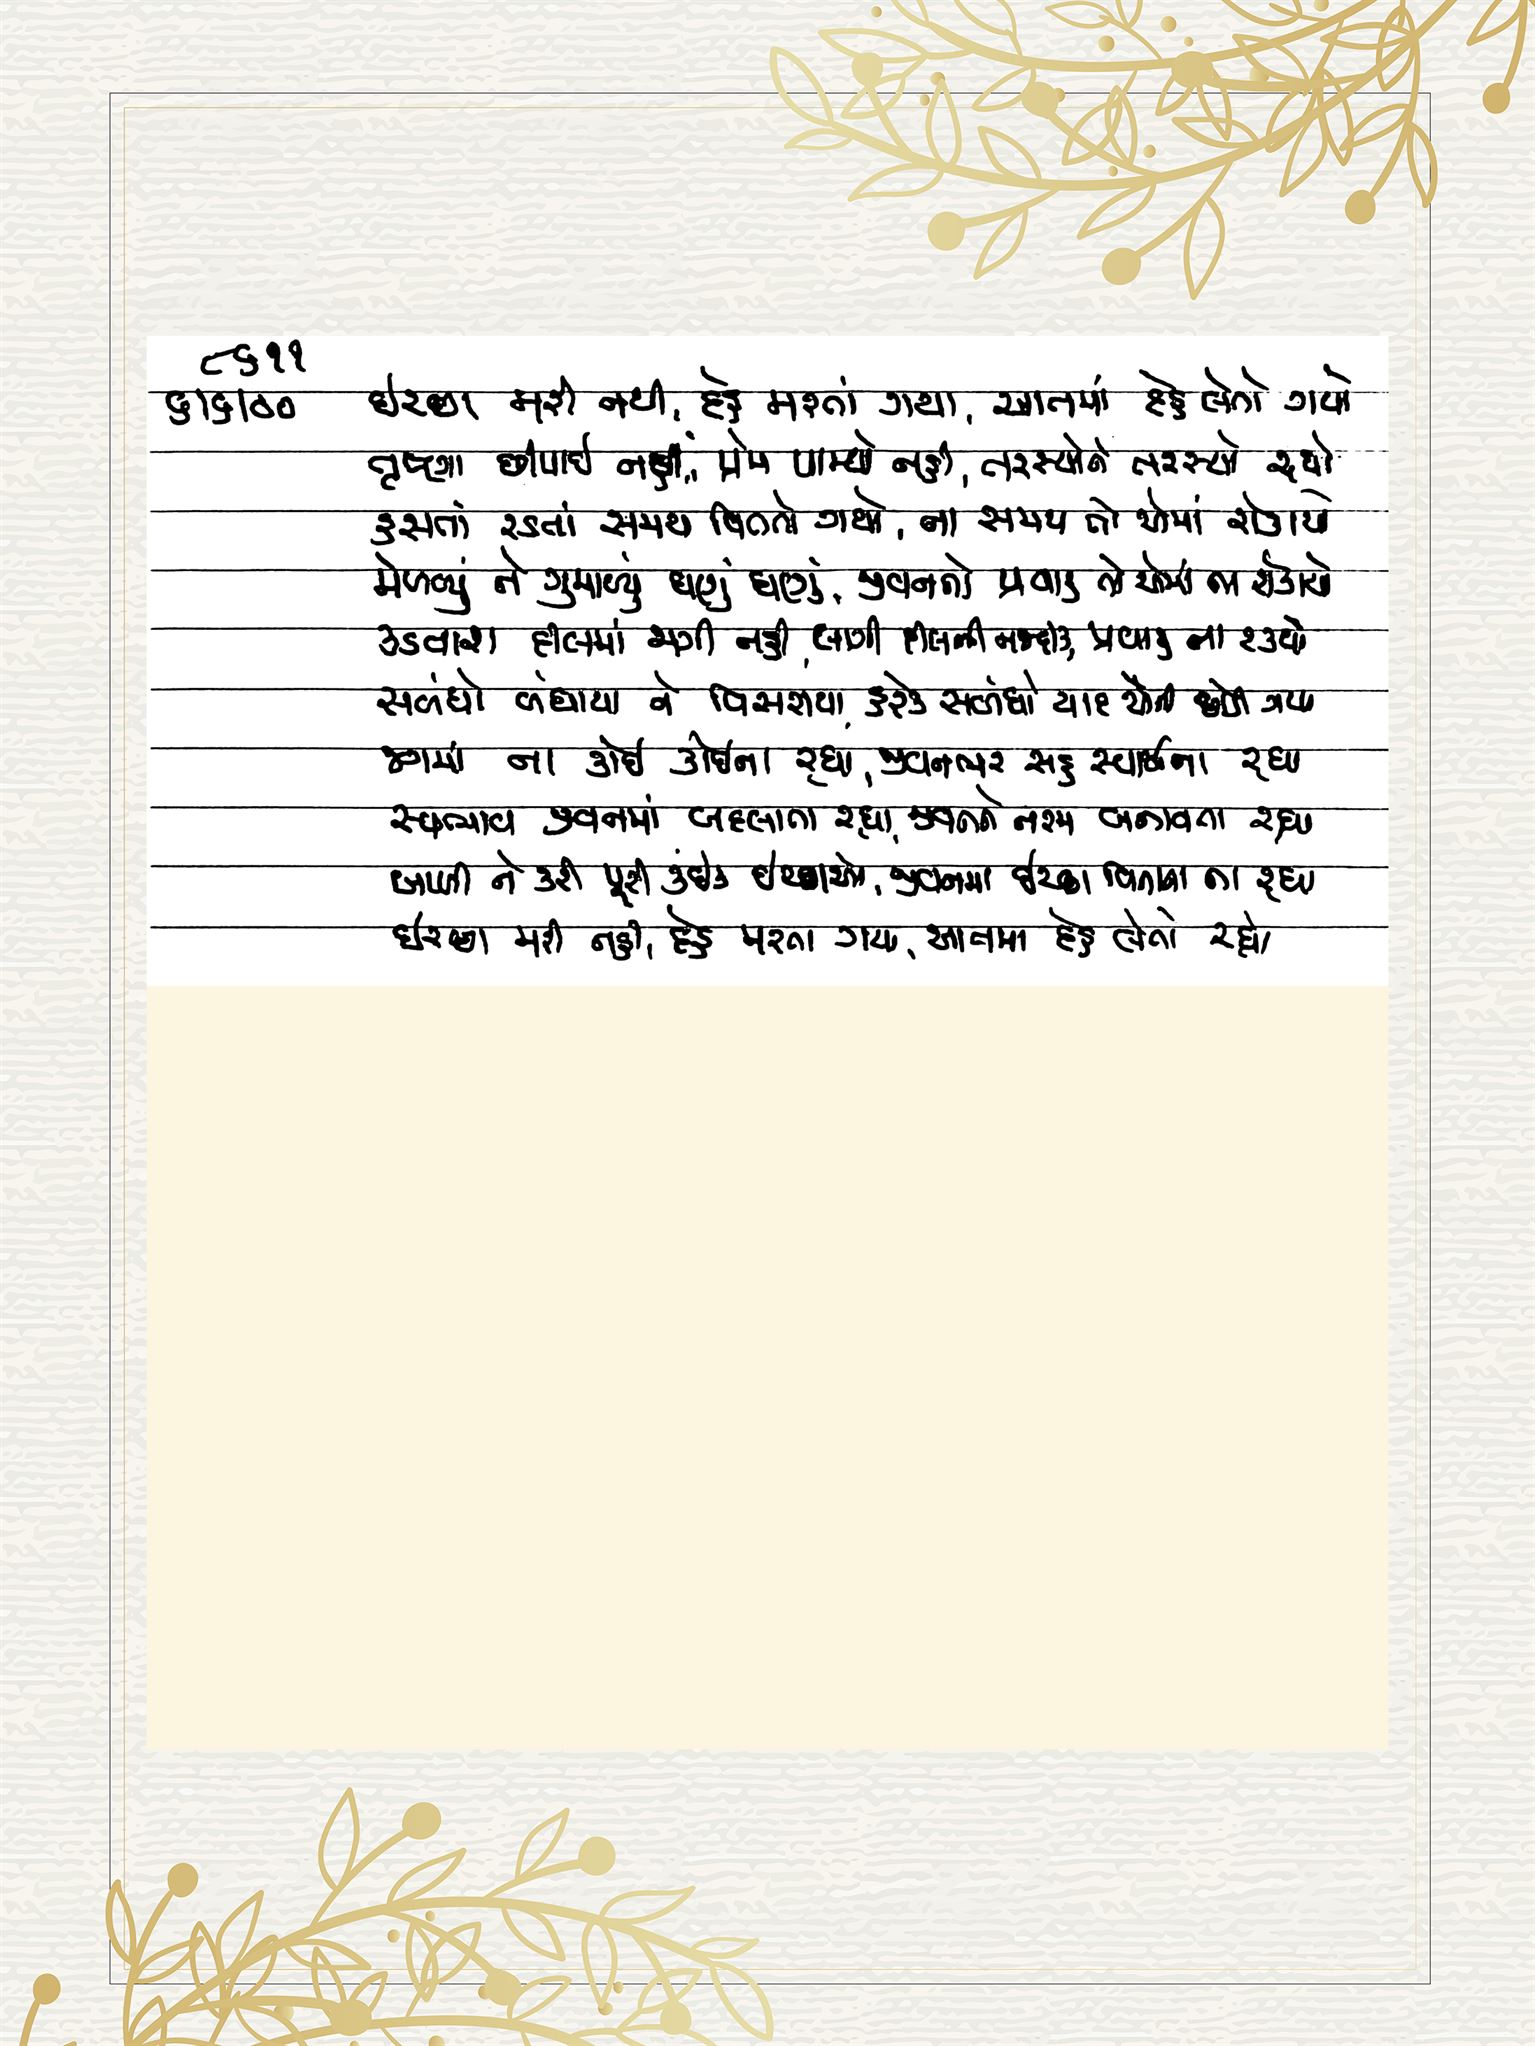 ૮૬૧૧
૬/૬/૦૦ ઇચ્છા મરી નથી, દેહ મરતાં ગયા, આતમાં દેહ લેતો ગયો
તૃષ્ણા છીપાઈ નહીં, પ્રેમ પામ્યો નહી, તરસ્યોને તરસ્યો રહ્યો
હસતાં રડતાં સમય વિતતો ગયો, ના સમય તો એમાં રોકાયો
મેળવ્યું ને ગુમાવ્યું ઘણું ઘણું, જીવનનો પ્રવાહ તો એમાં ના રોકાયો
કડવાશ દીલમાં જાગી નહી, લાગી દીલની નજદીક, પ્રવાહ ના રહ્યો
સબંધો બંધાયા ને વિસરાયા, હરેક સબંધો યાદ એની છોડી ગયા
જગમાં ના કોઈ કોઈના રહ્યા, જીવનભર સહુ સ્વાર્થના રહ્યા
સ્વભાવ જીવનમાં બદલાતા રહ્યા, જીવનને નરમ બનાવતા રહ્યા
ખાળી ને કરી પૂરી કંઈક ઇચ્છાઓ, જીવનમાં ઇચ્છા વિનાના ના રહ્યા
ઇચ્છા મરી નહી, દેહ મરતા ગયા, આતમા દેહ લેતો રહ્યો